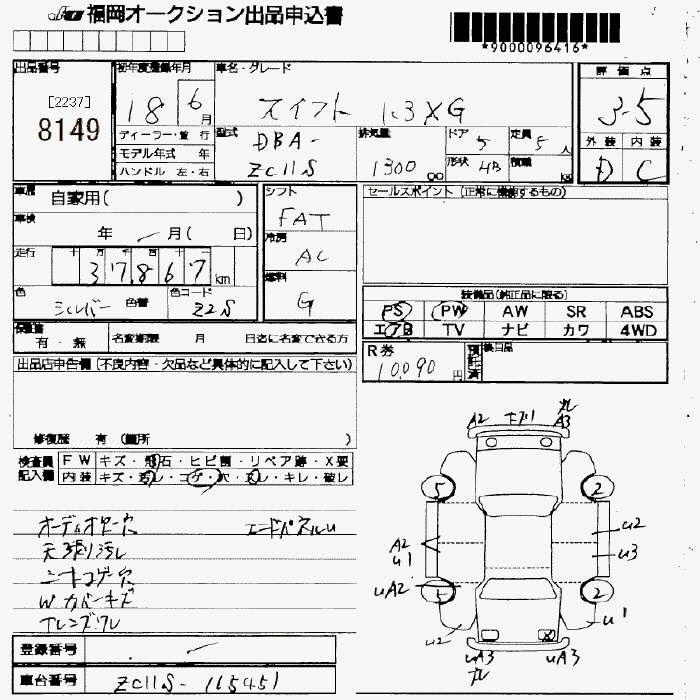 福岡オークション出品申込書
*9000096416*
出品番号 初年度登録年月 車名・グレード 評価点
[2237]
8149
18 6月 スイフト 1.3XG 3.5
ディーラー・並行
モデル年式 年
ハンドル 左・右
型式 DBA-
ZC11S
排気量 1300 cc
ドア 5
形状 4B
定員 5人
積載 kg
外装 内装
D C
車歴 自家用( )
車検 年 月( 日)
走行 十 万 千 百 十
37,867 km
色 シルバー 色替 色コード Z2S
シフト FAT
冷房 AC
燃料 G
セールスポイント (正常に機能するもの)
装備品(純正品に限る)
PS PW AW SR ABS
エアB TV ナビ カワ 4WD
保証書 有・無 名変期限 月 日迄に名変できる方
R券 10,090円 預託済 後日品
出品店申告欄(不良内容・欠品など具体的に記入して下さい)
修復歴 有 (箇所 )
検査員記入欄
FW キズ・飛石・ヒビ割・リペア跡・X要
内装 キズ・汚レ・コゲ・穴・スレ・キレ・破レ
オーディオ穴 エンドパネルU
天張り汚レ
シートコゲ穴
Wカバーキズ
TレンズワレA2 A3
5 2
A2 U1
U2
U3
UA2
5 2
U2 U1
UA3 UA3
登録番号
車台番号 ZC11S-165451